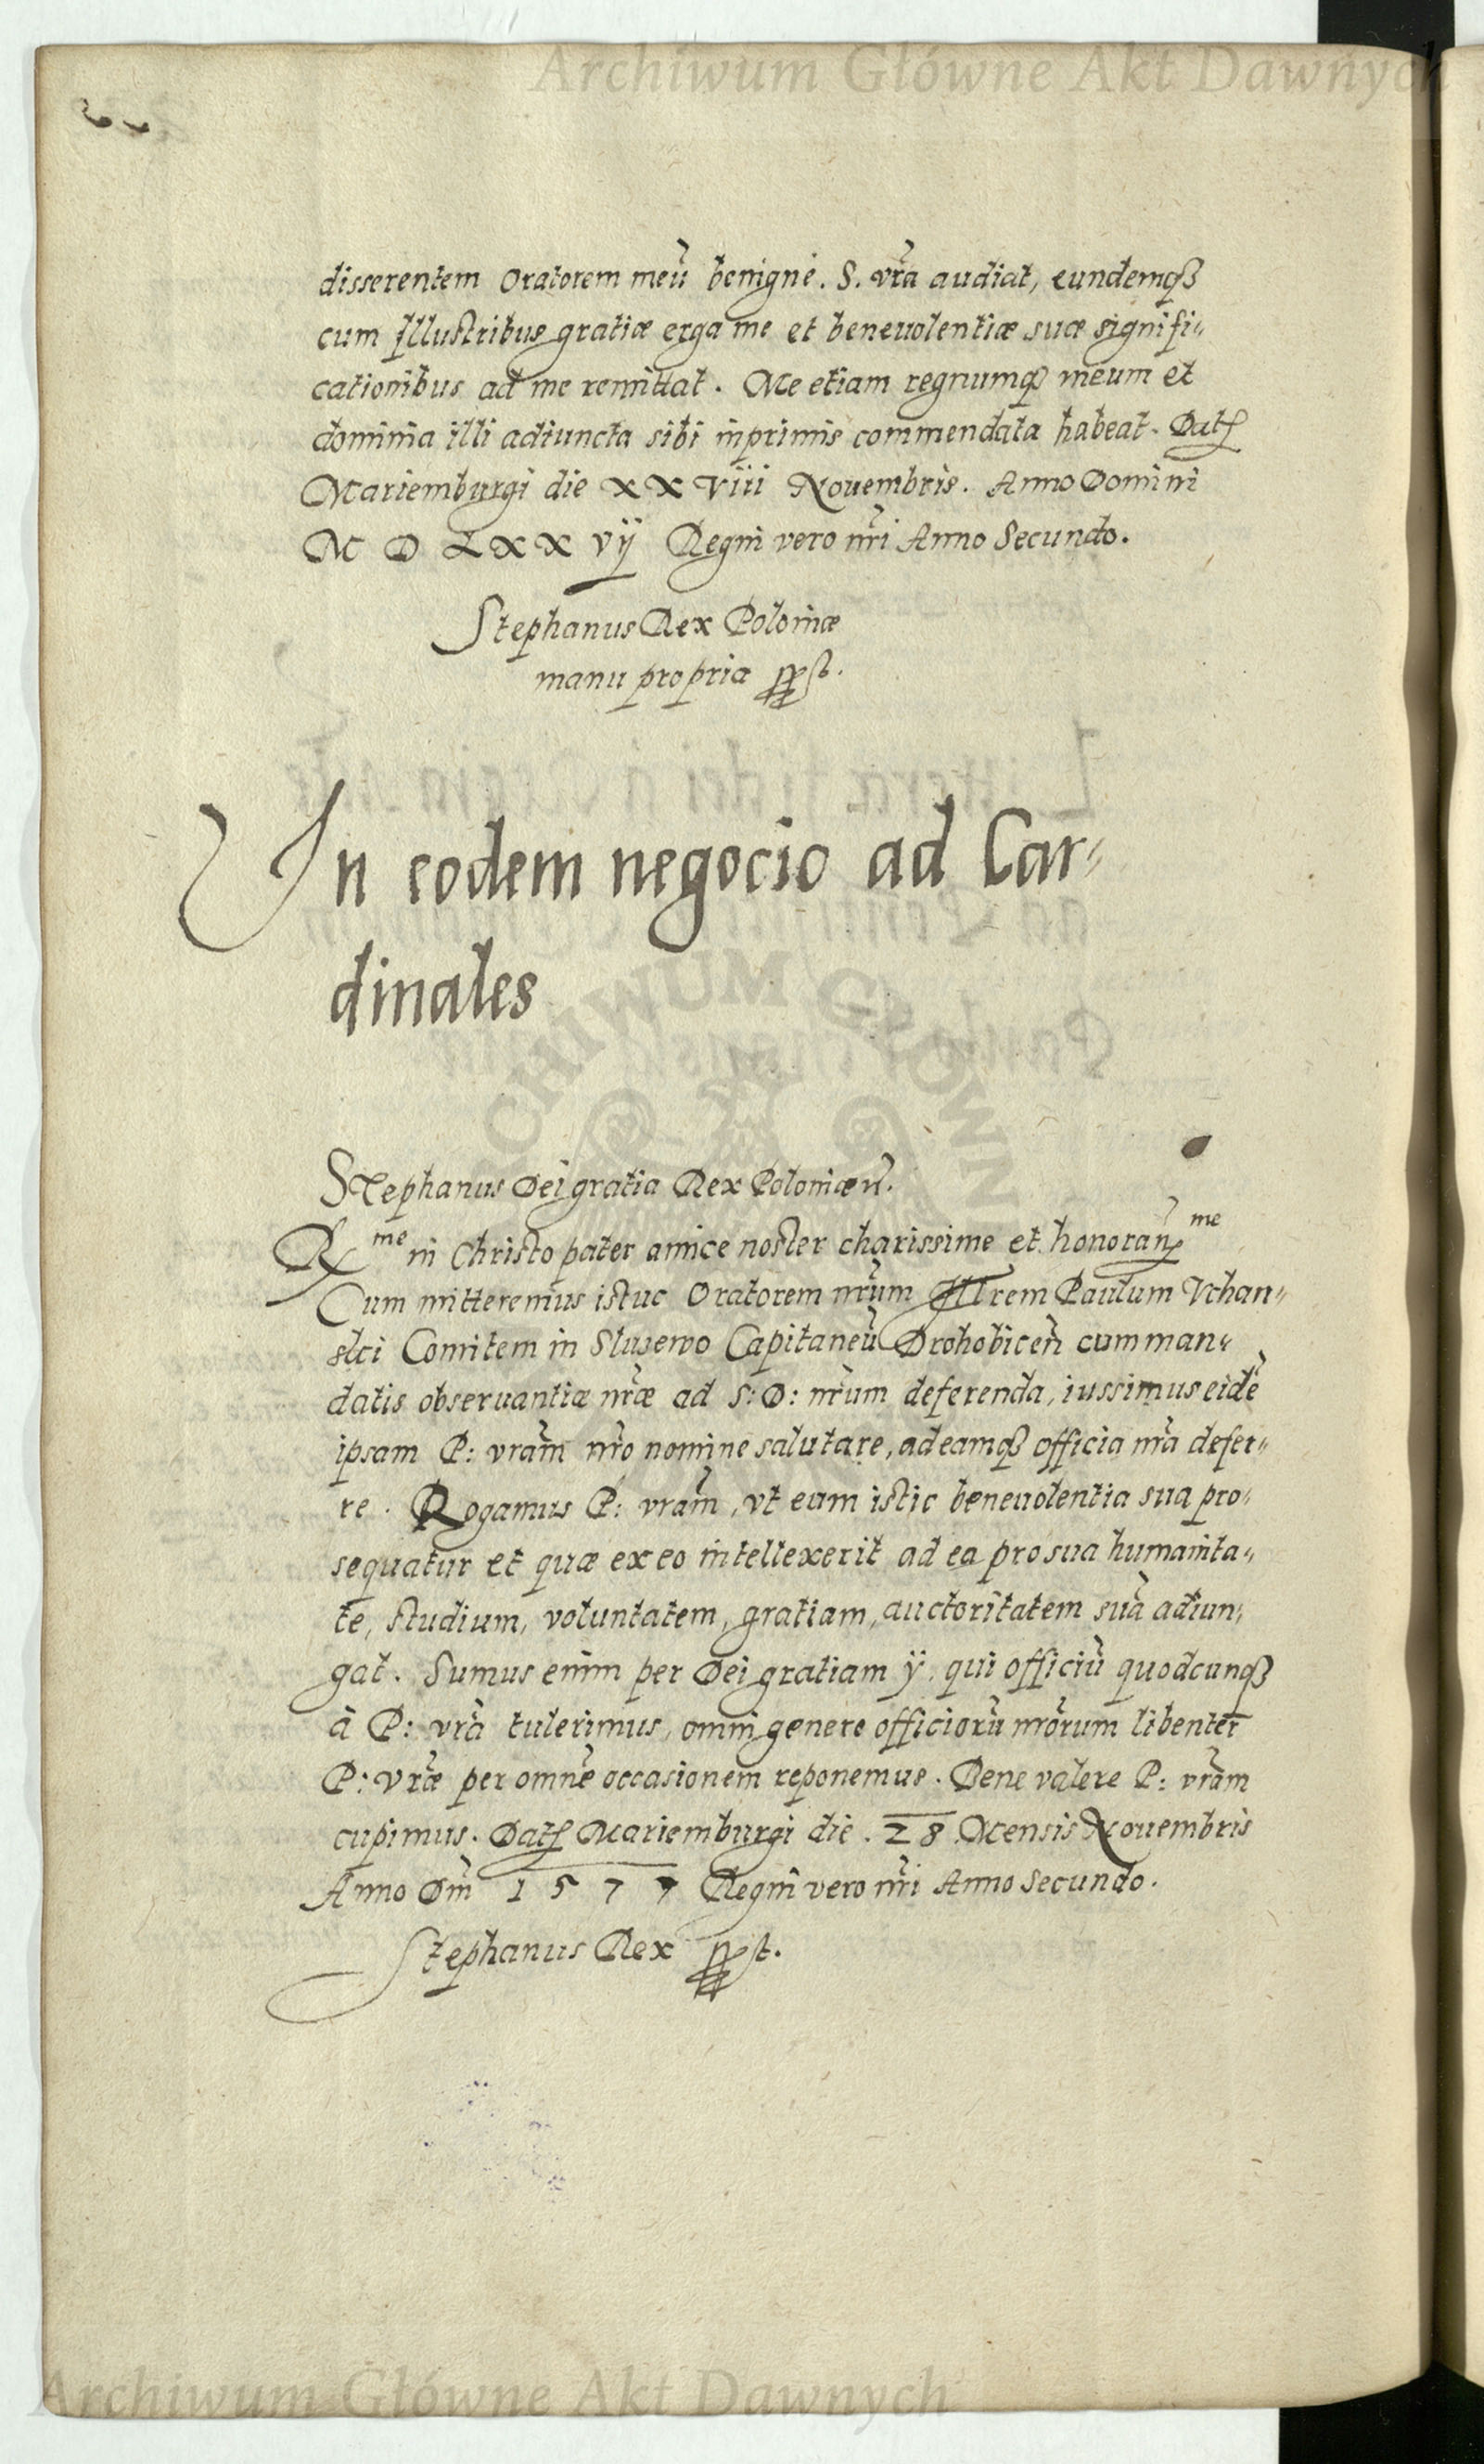 Archiwum Główne Akt Dawnych
disserentem Oratorem meũ benigne. S. vr̃a audiat, eundemqȝ
cum Illustribus gratiæ erga me et beneuolentiæ suæ signifi-
cationibus ad me remittat. Me etiam regnumqȝ meum et
dominia illi adiuncta sibi inprimis commendata habeat. Datę
Mariemburgi die XX viii Nouembris. Anno Domini
M D LXX vij Regni vero nr̃i Anno Secundo.
Stephanus Rex Poloniæ
manu propria sst.
In eodem negocio ad Car-
dinales
Stephanus Dei gratia Rex Poloniæ
R^me in Christo pater amice noster charissime et honoran^me
Cum mitteremus istuc Oratorem nr̃um Illrem Paulum Vchan-
sci Comitem in Slusewo Capitaneũ Drohobicen̄ cum man-
datis obseruantiæ nr̃æ ad S: D: nr̃um deferenda, iussimus eidẽ
ipsam P: vrãm nr̃o nomine salutare, ad eamqȝ officia nr̃a defer-
re. Rogamus P: vrãm, vt eum istic beneuolentia sua pro-
sequatur et quæ ex eo intellexerit ad ea pro sua humanita-
te, studium, voluntatem, gratiam, auctoritatem suã adiun-
gat. Sumus enim per Dei gratiam ÿ, qui officiũ quodcunqȝ
à P: vr̃a tulerimus, omni genere officiorũ nr̃orum libenter
P: vr̃æ per omnẽ occasionem reponemus. Bene valere P: vrãm
cupimus. Datę Mariemburgi die. 28 Mensis Nouembris
Anno Dni 1577 Regni vero nr̃i Anno Secundo.
Stephanus Rex sst.
Archiwum Główne Akt Dawnych